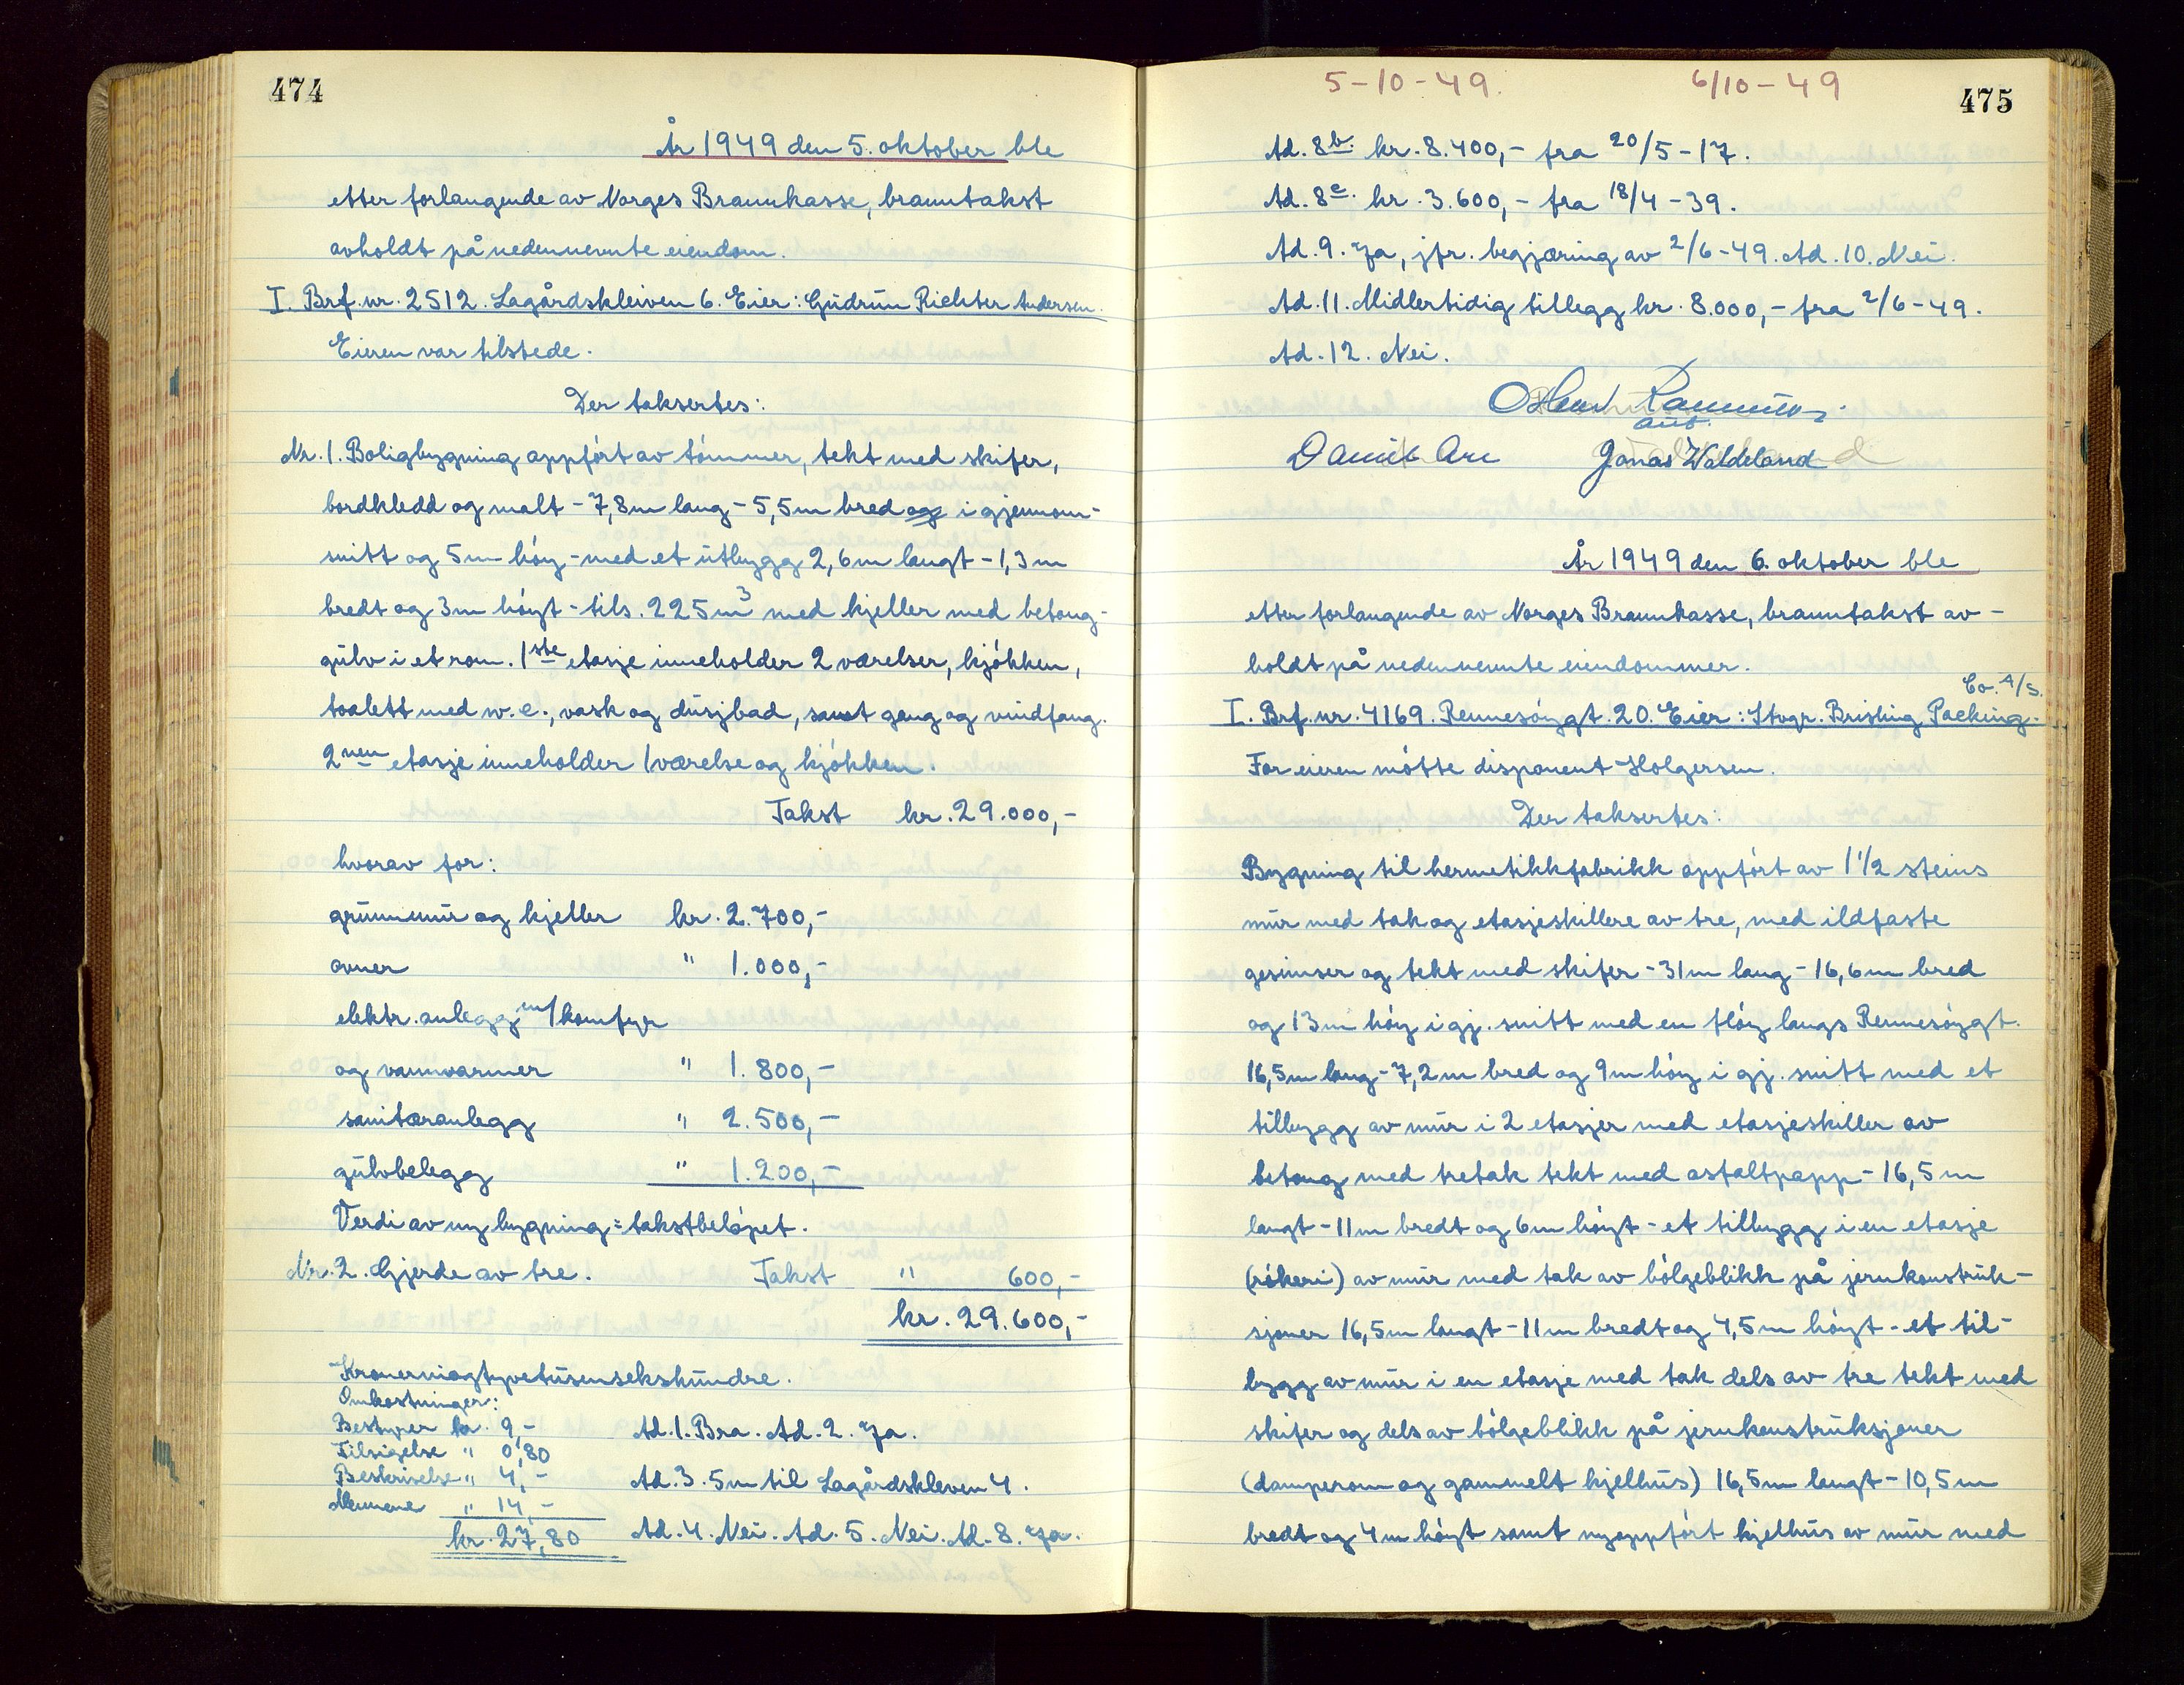 474
År 1949 den 5. oktober ble
etter forlangende av Norges Brannkasse, branntakst
avholdt på nedennevnte eiendom.
I. Brf. nr. 2512. Lagårdskleiven 6. Eier: Gudrun Richter Andersen.
Eieren var tilstede.
Der taksertes:
Nr. 1. Boligbygning oppført av tømmer, tekt med skifer,
bordkledd og malt - 7,8m lang - 5,5m bred og i gjennom-
snitt og 5m høy - med et utbygg 2,6m langt - 1,3m
bredt og 3m høyt - tils. 225m³ med kjeller med betong-
gulv i et rom. 1ste etasje inneholder 2 værelser, kjøkken,
toalett med w.c., vask og dusjbad, samt gang og vindfang.
2nen etasje inneholder 1 værelse og kjøkken.
Takst kr. 29.000,-
hvorav for:
grunnmur og kjeller kr. 2.700,-
ovner " 1.000,-
elektr. anlegg m/komfyr
og vannvarmer " 1.800,-
sanitæranlegg " 2.500,-
gulvbelegg " 1.200,-
Verdi av ny bygning = takstbeløpet.
Nr. 2. Gjerde av tre. Takst " 600,-
kr. 29.600,-
Kronerniogtyvetusensekshundre.
Omkostninger:
Bestyrer kr. 9,-
Tilsigelse " 0,80
Beskrivelse " 4,-
Mennene " 14,-
kr. 27,80
Ad. 1. Bra. Ad. 2. Ja.
Ad. 3. 5m til Lagårdskleven 4.
Ad. 4. Nei. Ad. 5. Nei. Ad. 8. Ja.
5-10-49. 6/10-49
475
Ad. 8b. kr. 8.400,- fra 20/5-17.
Ad. 8c. kr. 3.600,- fra 18/4-39.
Ad. 9. Ja, jfr. begjæring av 2/6-49. Ad. 10. Nei.
Ad. 11. Midlertidig tillegg kr. 8.000,- fra 2/6-49.
Ad. 12. Nei.
Jonas Waldeland
År 1949 den 6. oktober ble
etter forlangende av Norges Brannkasse, branntakst av-
holdt på nedennevnte eiendommer.
I. Brf. nr. 4169. Rennesøygt. 20. Eier: Stvgr. Brisling Packing Co. A/S.
For eieren møtte disponent Holgersen.
Der taksertes:
Bygning til hermetikkfabrikk oppført av 1 1/2 steins
mur med tak og etasjeskillere av tre, med ildfaste
gesimser og tekt med skifer - 31m lang - 16,6m bred
og 13m høy i gj. snitt med en fløy langs Rennesøygt.
16,5m lang - 7,2m bred og 9m høy i gj. snitt med et
tilbygg av mur i 2 etasjer med etasjeskiller av
betong med tretak tekt med asfaltpapp - 16,5m
langt - 11m bredt og 6m høyt - et tilbygg i en etasje
(røkeri) av mur med tak av bølgeblikk på jernkonstruk-
sjoner 16,5m langt - 11m bredt og 4,5m høyt - et til-
bygg av mur i en etasje med tak dels av tre tekt med
skifer og dels av bølgeblikk på jernkonstruksjoner
(damperom og gammelt kjelhus) 16,5m langt - 10,5m
bredt og 4m høyt samt nyoppført kjelhus av mur med